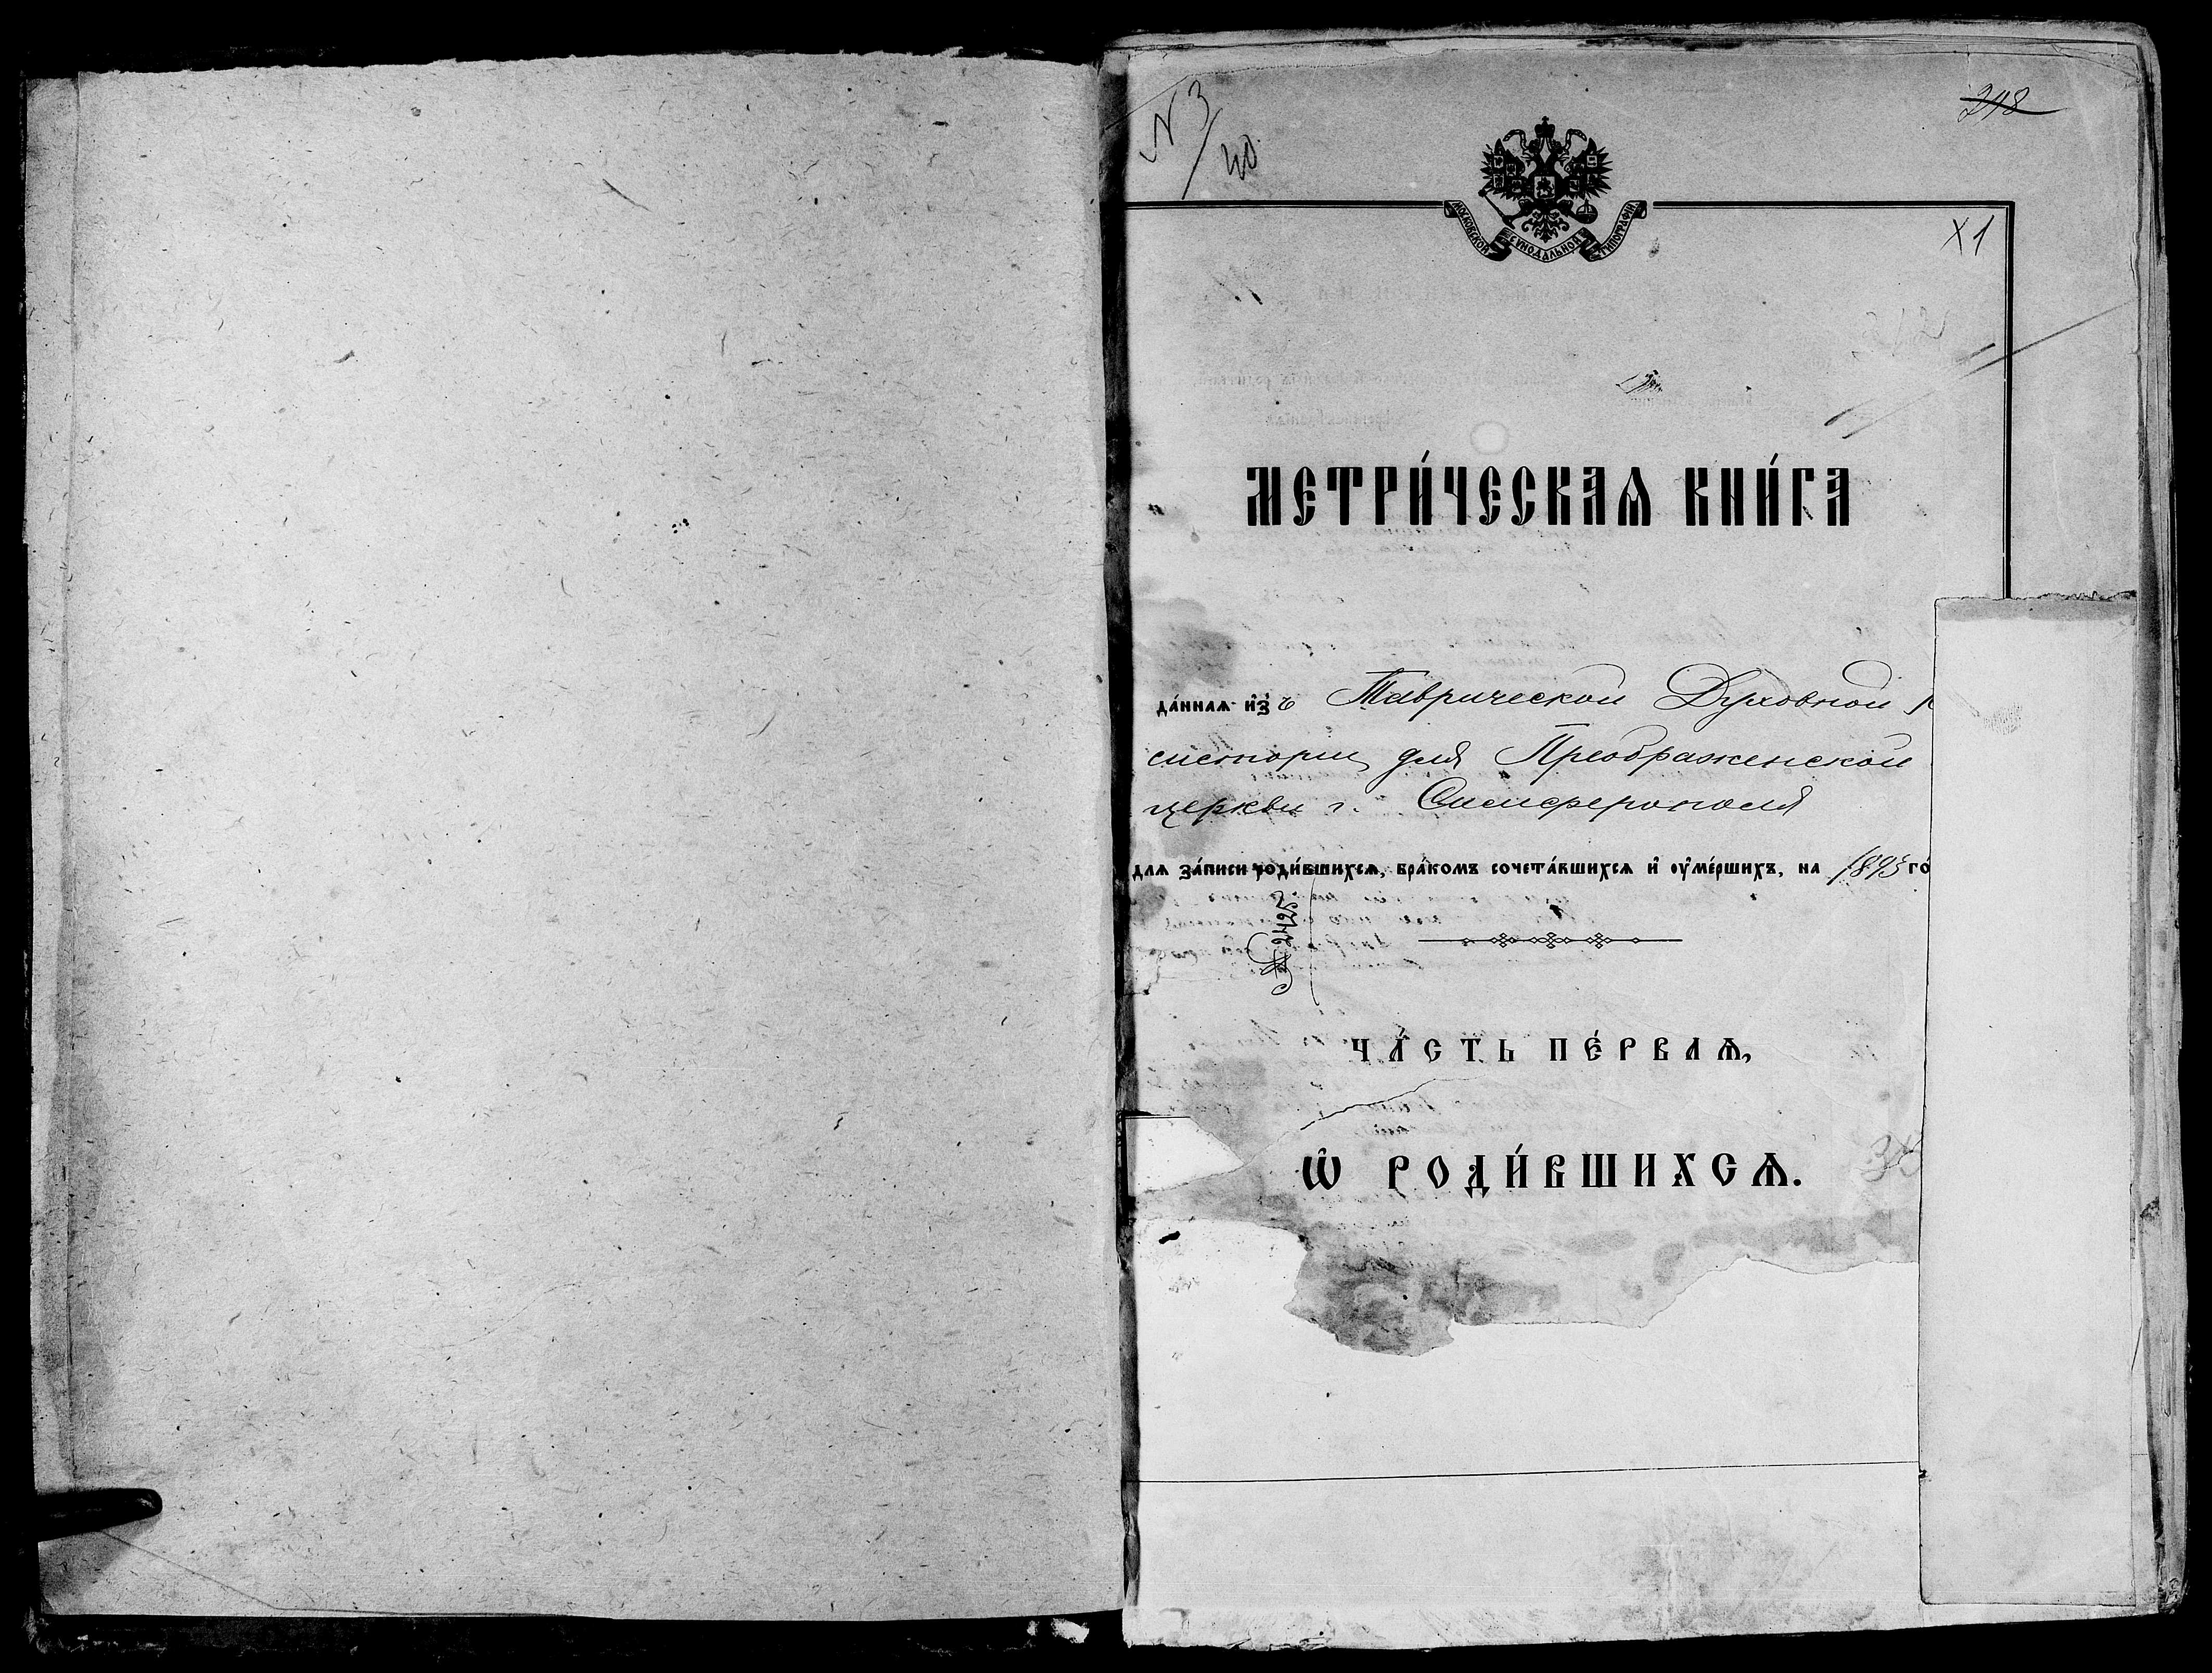 N 3/40
218
МОСКОВСКОЙ СѴНОДАЛЬНОЙ ТИПОГРАФІИ
X 1
МЕТРИ́ЧЕСКАѦ КНИ́ГА
да́ннаѧ и҆зъ Таврической Духовной К
систоріи для Преображенской
церкви г. Симферополя
для за́писи роди́вшихсѧ, бра́комъ сочета́вшихсѧ и҆ оу҆ме́ршихъ, на 1893 го́
№ 2425
ЧА́СТЬ ПЕ́РВАѦ,
Ѡ҆ РОДИ́ВШИХСѦ.